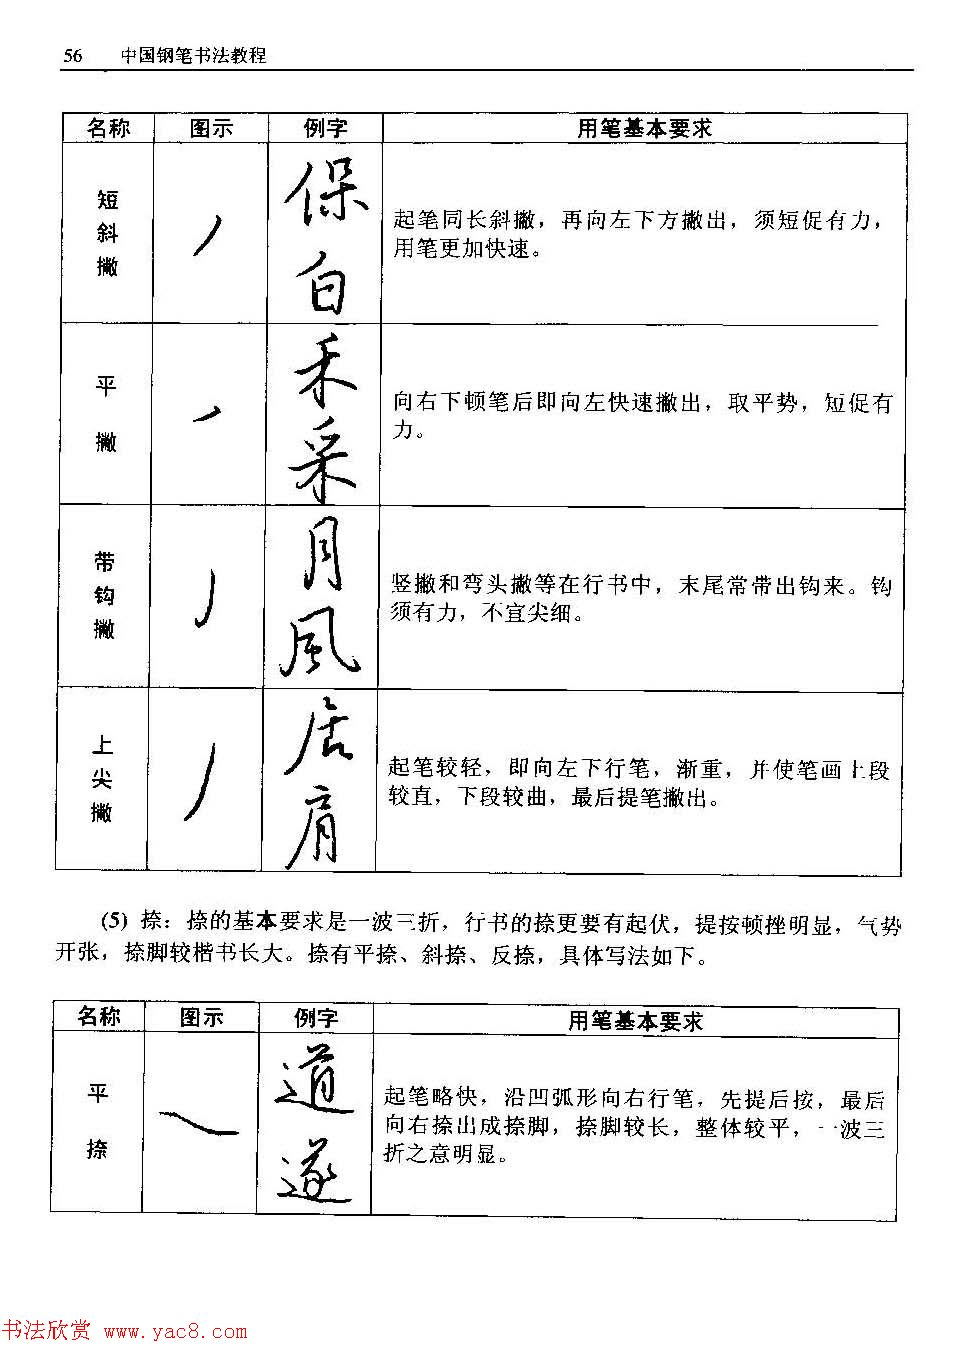 56 中国钢笔书法教程
名称 图示 例字 用笔基本要求
短斜撇 保 白
起笔同长斜撇，再向左下方撇出，须短促有力，
用笔更加快速。
平撇 禾 采
向右下顿笔后即向左快速撇出，取平势，短促有
力。
带钩撇 月 風
竖撇和弯头撇等在行书中，末尾常带出钩来。钩
须有力，不宜尖细。
上尖撇 居 肩
起笔较轻，即向左下行笔，渐重，并使笔画上段
较直，下段较曲，最后提笔撇出。
(5) 捺：捺的基本要求是一波三折，行书的捺更要有起伏，提按顿挫明显，气势
开张，捺脚较楷书长大。捺有平捺、斜捺、反捺，具体写法如下。
名称 图示 例字 用笔基本要求
平捺 道 遂
起笔略快，沿凹弧形向右行笔，先提后按，最后
向右捺出成捺脚，捺脚较长，整体较平，一波三
折之意明显。
书法欣赏 www.yac8.com